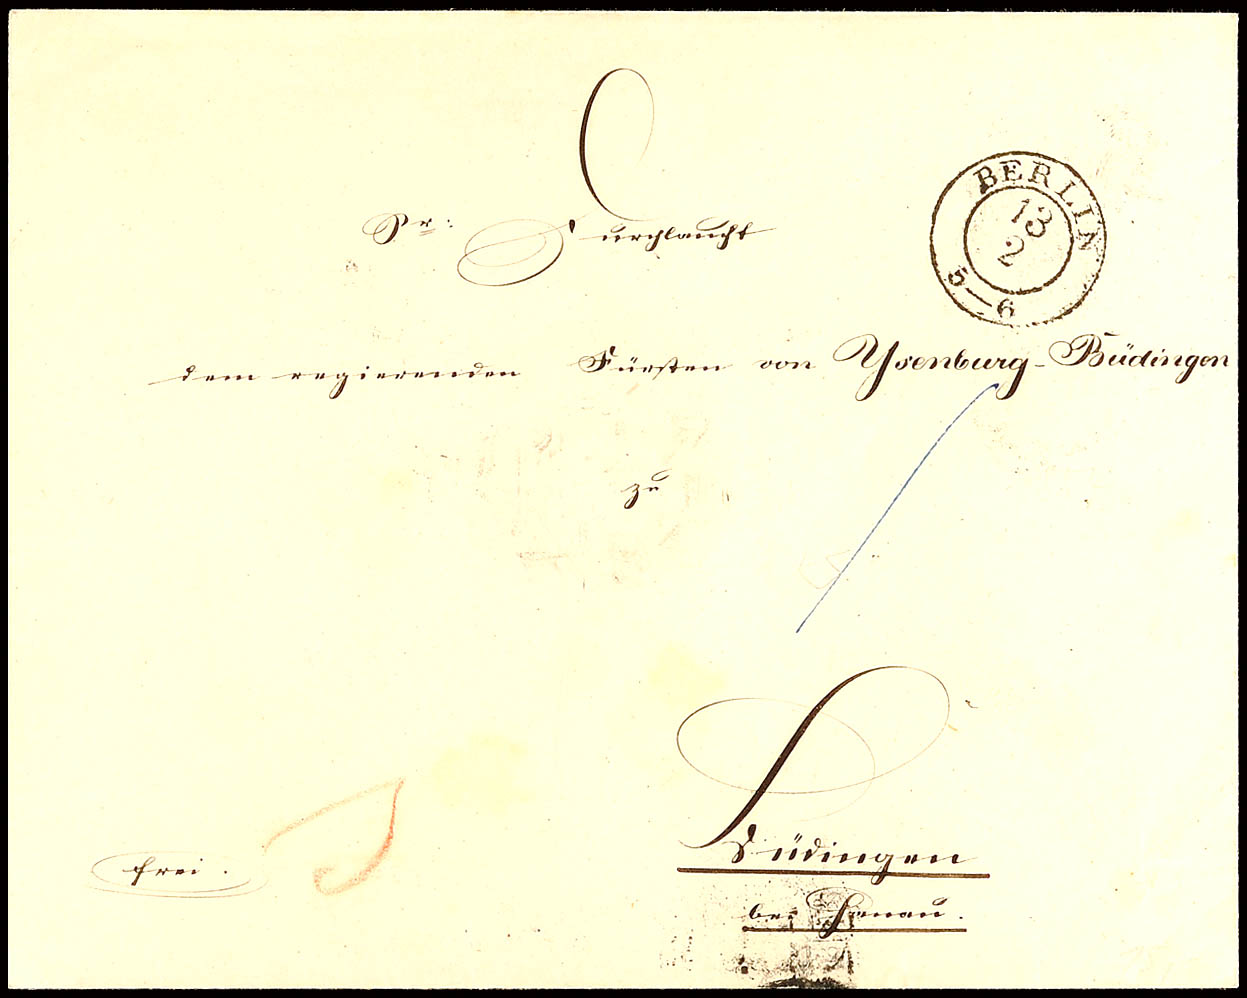 Sr: Durchlaucht
BERLIN
13
2
5—6
dem regierenden Fürsten von Ysenburg-Büdingen
zu
Büdingen
frei.
bei Hanau.